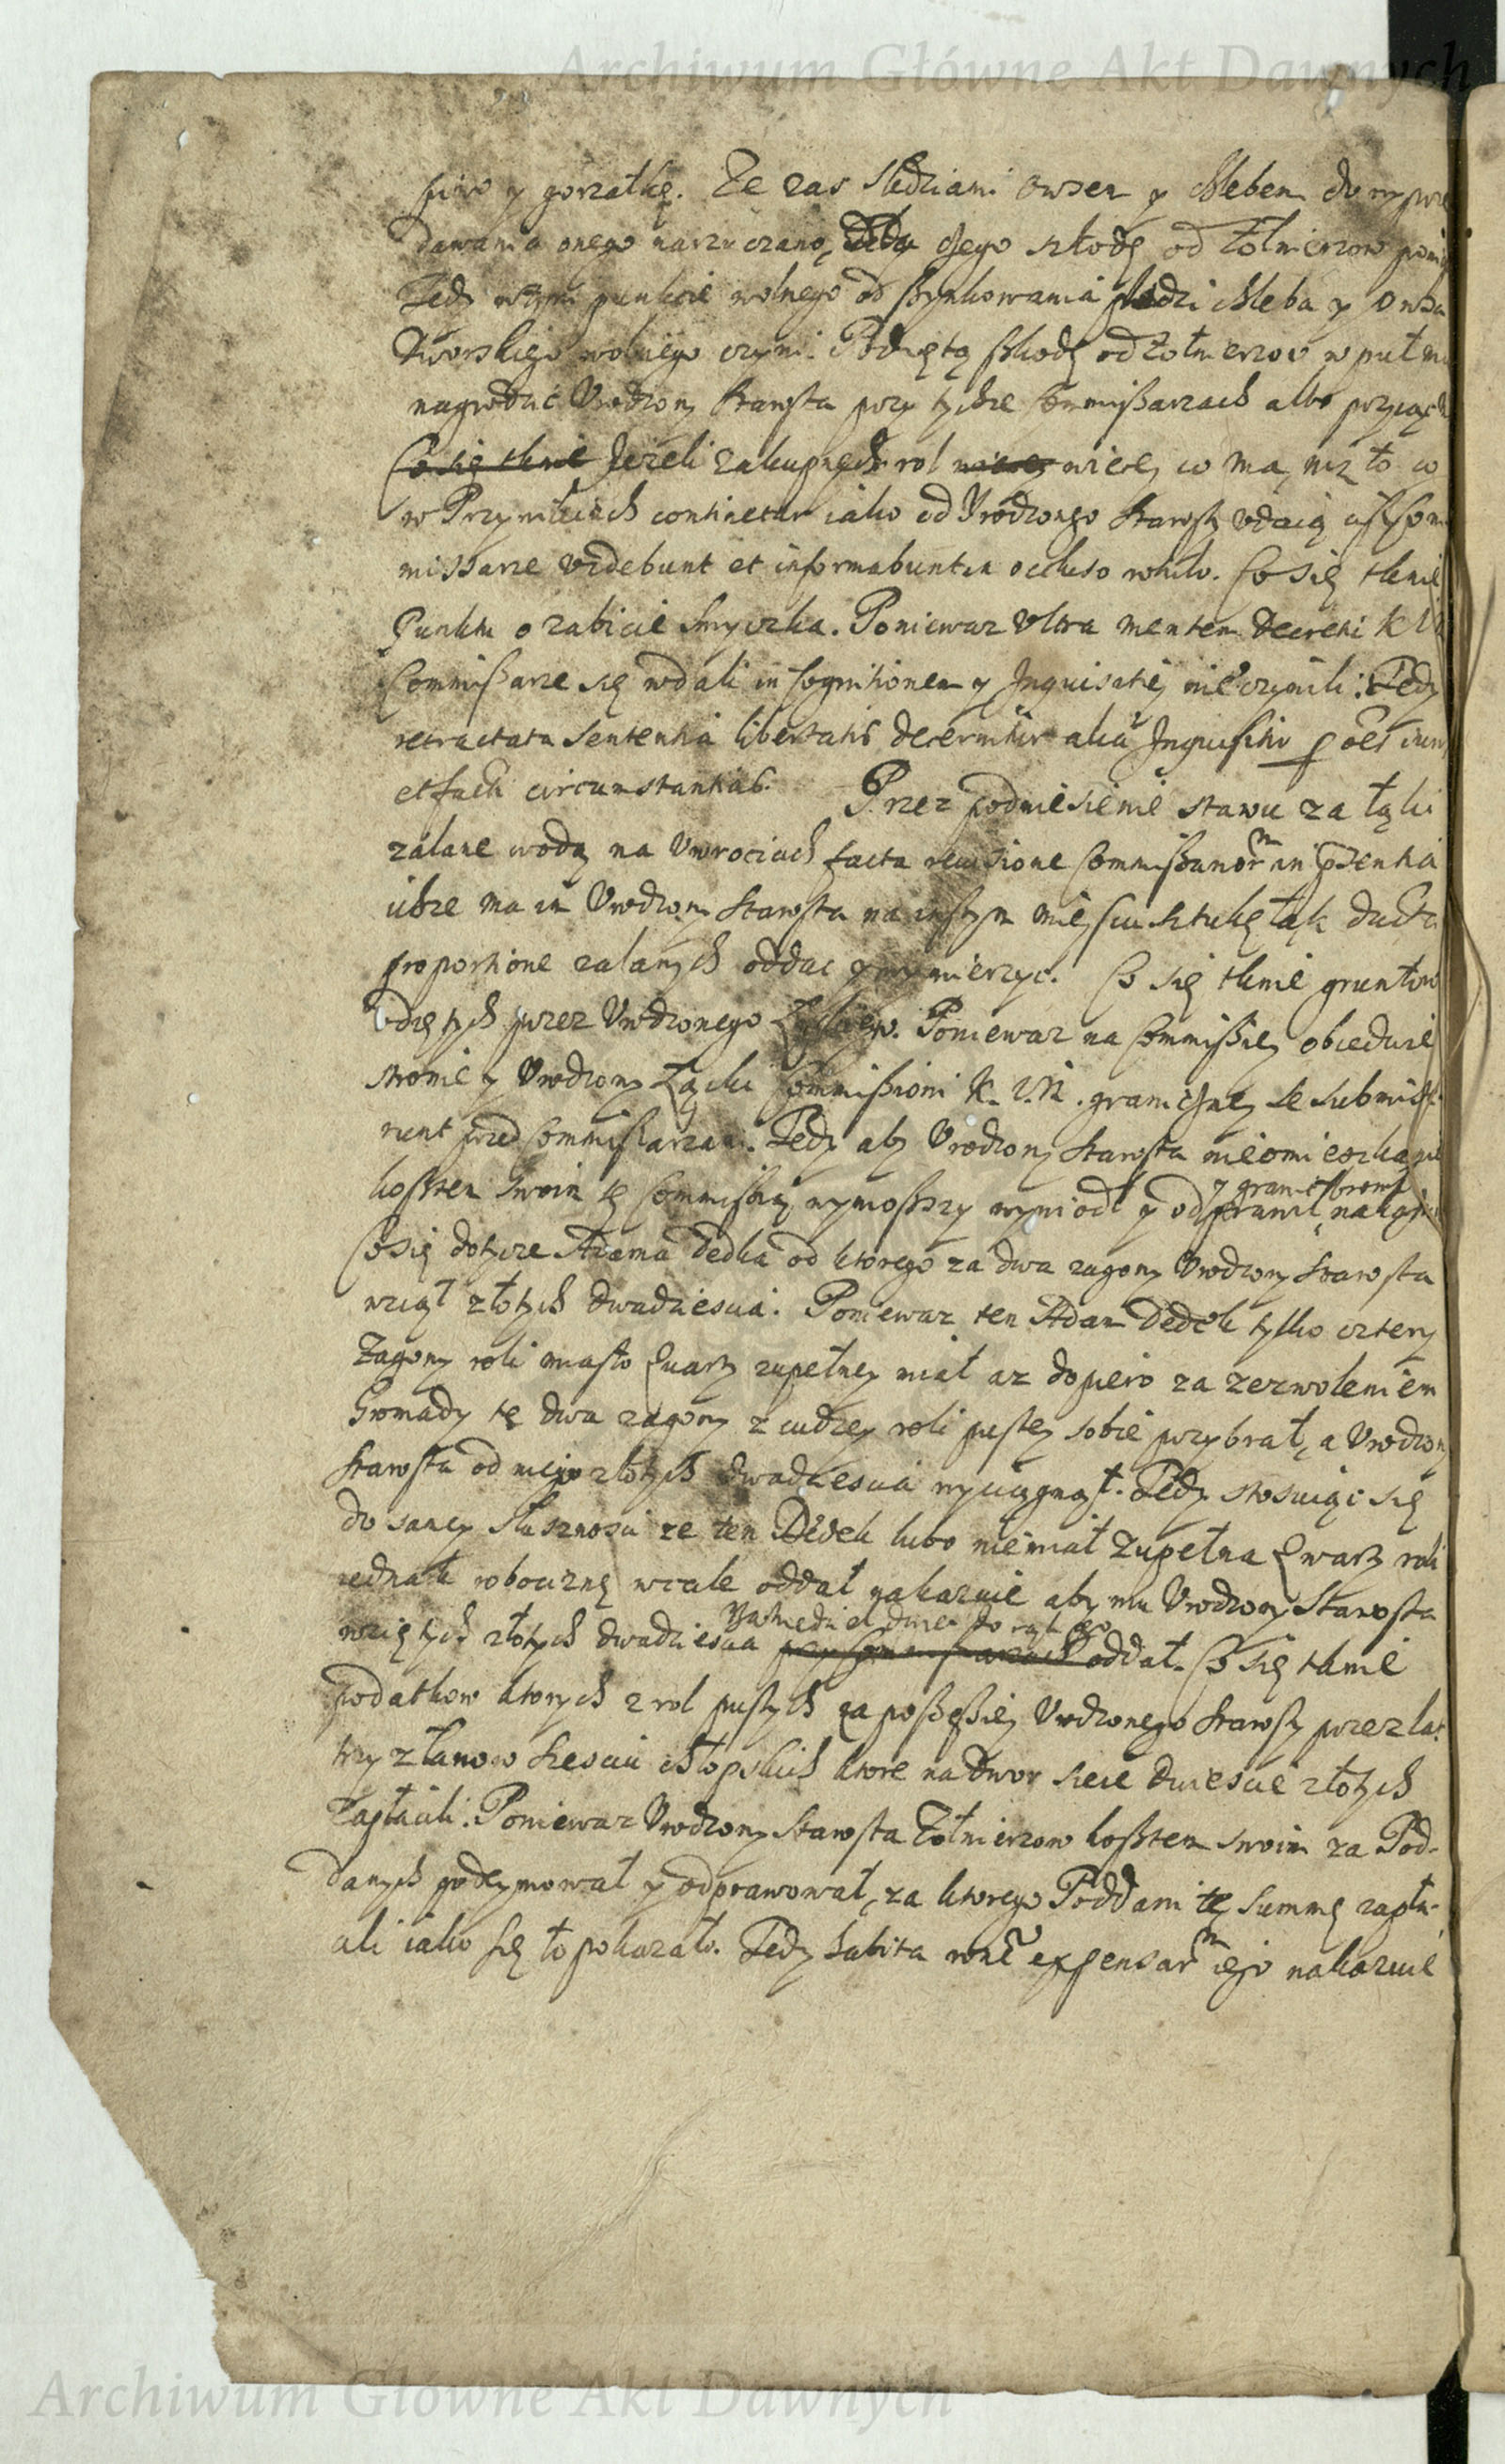 Archiwum Główne Akt Dawnych
piwo y gorzałkę. Ze zas sledziami owsem y chlebem do wyprze
dawania onego narzucano, szkodę od Zołnierzow
Tedy w tym punkcie wolnego od szynkowania sledzi chleba y owsa
Dworskiego wolnego czyni. Podiętą szkodę od Zołnierzow w puł
nagrodzić Urodzony Starosta przy tychze Commissarzach albo przysiądz
Co się tknie Jezeli zakupnych rol wiecey wiecey co ma, niz to co
w Przywileiach continetur iako od Urodzonego Starosty udaią ciz Com
missarze videbunt et informabuntur oculuso rotulo. Co się tknie
Punktu o zabicie Smyczka. Poniewaz ultra mentem Decreti K
Commissarze się wdali in Cognitionem y Inquisitiey nie czynili: Tedy
retractata sententia libertatis decernitur alia Inquisitio oes
et facti circumstantias. Przez podniesienie stawu za łąki
zalane wodą na Uwrociach facta revisione Commissarior in psentia
ichze ma im Urodzony Starosta na inszym mieyscu sztukę łąk ducta
proportione zalanych oddac y wymierzyc. Co się tknie gruntow
odiętych przez Urodzonego Poniewaz na Commissiey obiedwie
stronie y Urodzony Łącki Commissioni K. graniczney se submise
runt przed Commissarzami. Tedy aby Urodzony Starosta nieomieszkanie
kosztem swoim tę Commissią wyniosł y od
y granic
Co się dotycze Adama Dedka od ktorego za dwa zagony Urodzony Starosta
wziął złotych dwadziescia. Poniewaz ten Adam Dedek tylko cztery
zagony roli miasto Cwarty zupełney miał az dopiero za zezwoleniem
Gromady te dwa zagony z cudzey roli pustey sobie przybrał, a Urodzony
Starosta od niego złotych dwadziescia wyciągnął. Tedy stosuiąc się
do samey słusznosci ze ten Dedek lubo niemiał zupełna Cwarty roli
iednak roboczną wcale oddał nakazuie aby mu Urodzony Starosta
wziętych złotych dwadziescia przy Commissarzach oddał. Co się tknie
podatkow ktorych z rol pustych za possessiey Urodzonego Starosty przez lat
trzy z łanow szesciu chłopskich ktore na dwor sieie dwiescie złotych
zapłacili. Poniewaz Urodzony Starosta Zołnierzow kosztem swoim za Pod-
danych podeymował y odprawował, za ktorego Poddani tę summę zapła-
cili iako się to pokazało. Tedy habita rone expensar iego nakazuie
Archiwum Główne Akt Dawnych